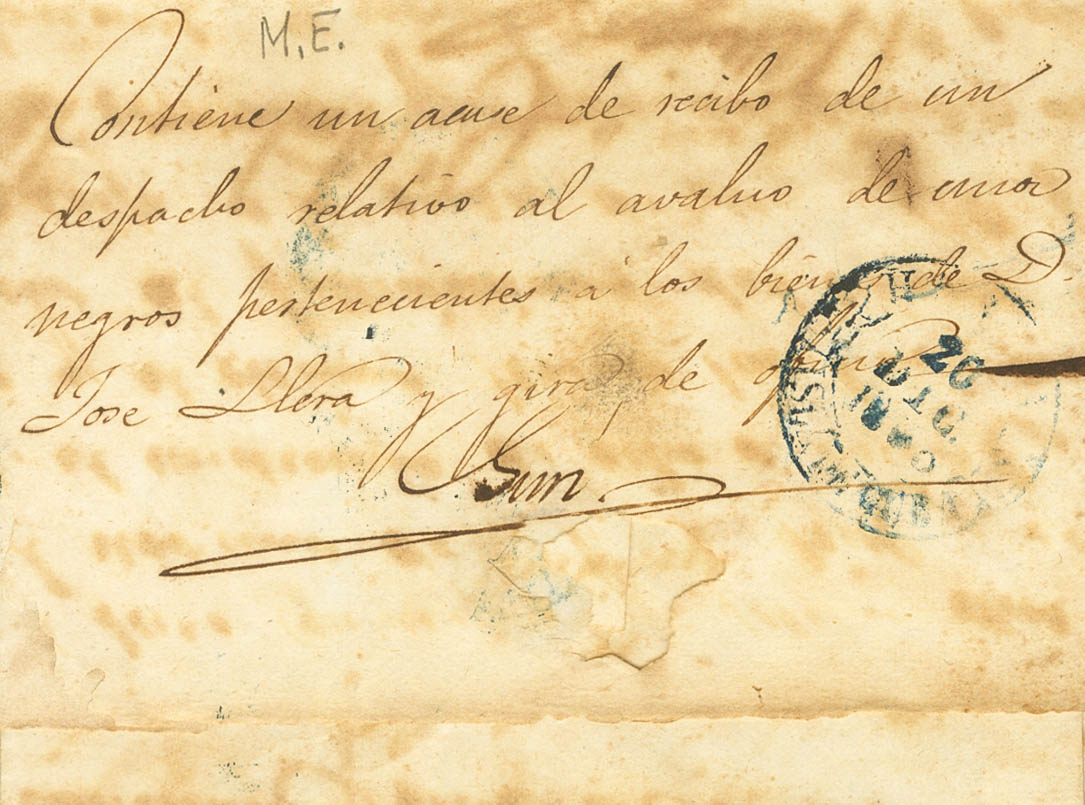 M.E.
Contiene un acuse de recibo de un
despacho relativo al avaluo de unos
negros pertenecientes á los bienes de D.
Jose Llera y gira de
20